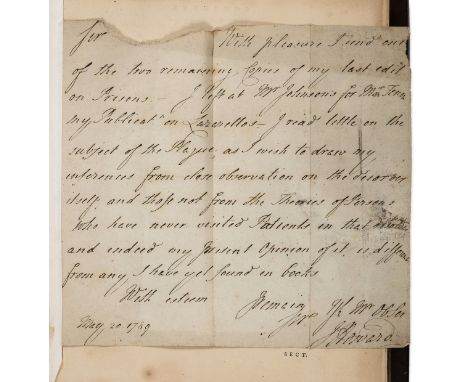 Sir With pleasure I send one
of the two remaining Copies of my last edit
on Prisons — I left at Mr Johnsons for
my Publicatn on Lazarettos — I read little on the
subject of the Plague, as I wish to draw my
inferences from close observation on the disorder
itself and those not from the Theories of Persons
who have never visited Patients in that disorder
and indeed my present Opinion of it is different
from any I have yet found in books
With esteem I remain
Sir Yr Mt Ob Ser
May 20 1789 JHoward
SECT.